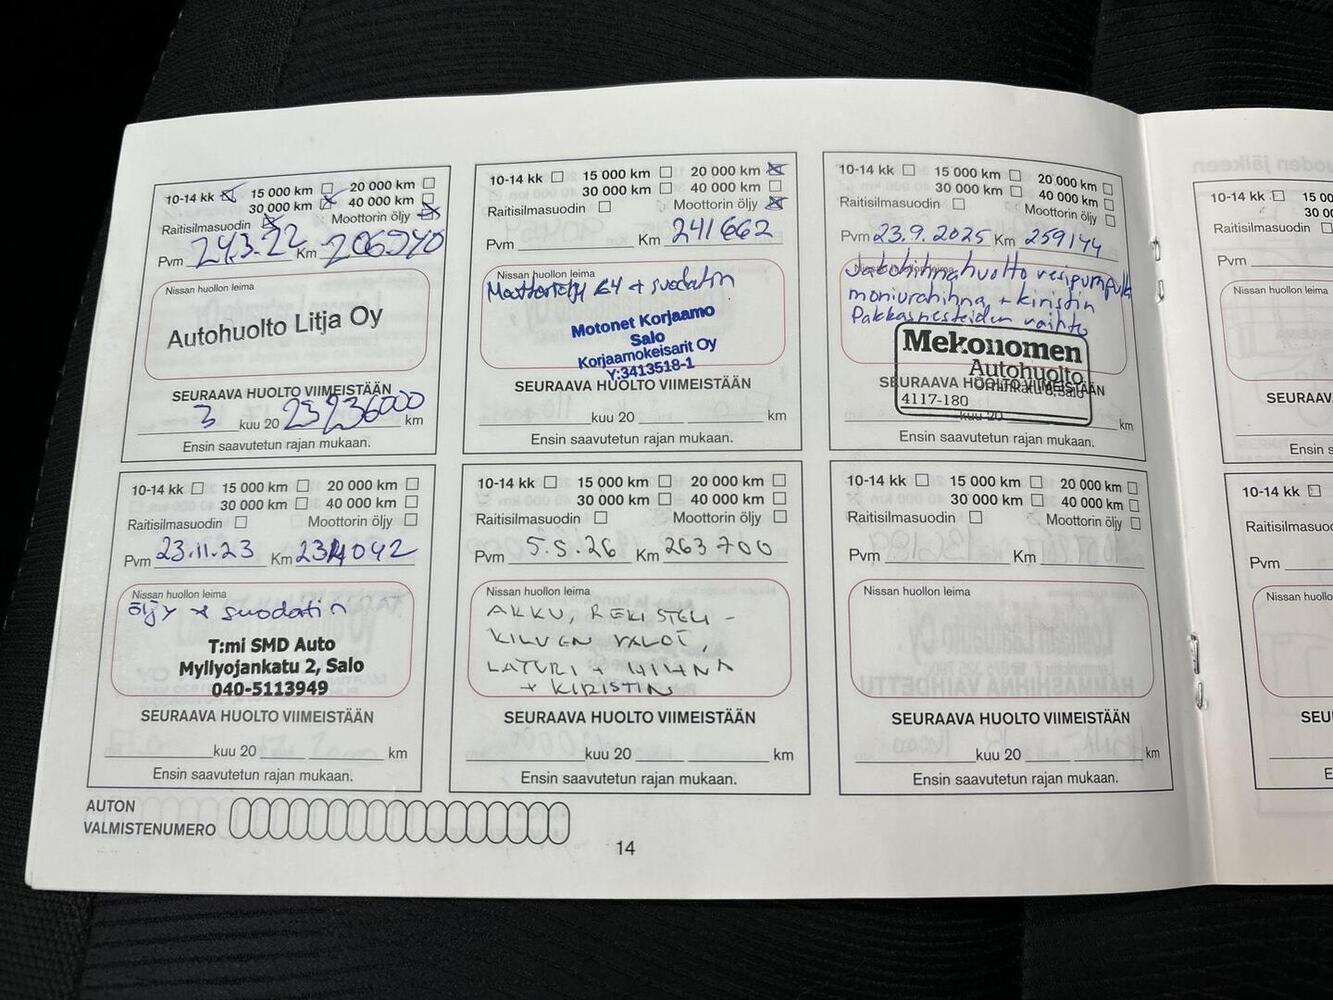 10-14 kk 15 000 km 20 000 km
30 000 km 40 000 km
Raitisilmasuodin Moottorin öljy
Pvm 24.3.22 Km 206240
Nissan huollon leima
Autohuolto Litja Oy
SEURAAVA HUOLTO VIIMEISTÄÄN
3 kuu 20 23 236000 km
Ensin saavutetun rajan mukaan.
10-14 kk 15 000 km 20 000 km
30 000 km 40 000 km
Raitisilmasuodin Moottorin öljy
Pvm Km 241662
Nissan huollon leima
Moottoriöljy + suodatin
Motonet Korjaamo
Salo
Korjaamokeisarit Oy
Y:3413518-1
SEURAAVA HUOLTO VIIMEISTÄÄN
kuu 20 km
Ensin saavutetun rajan mukaan.
10-14 kk 15 000 km 20 000 km
30 000 km 40 000 km
Raitisilmasuodin Moottorin öljy
Pvm 23.9.2025 Km 259144
Nissan huollon leima
Jakohihnahuolto vesipumpulla
moniurahihna, + kiristin
Pakkasnesteiden vaihto
Mekonomen
Autohuolto
4117-180
SEURAAVA HUOLTO VIIMEISTÄÄN
kuu 20 km
Ensin saavutetun rajan mukaan.
10-14 kk 15 000 km 20 000 km
30 000 km 40 000 km
Raitisilmasuodin Moottorin öljy
Pvm 23.11.23 Km 234092
Nissan huollon leima
öljy + suodatin
T:mi SMD Auto
Myllyojankatu 2, Salo
040-5113949
SEURAAVA HUOLTO VIIMEISTÄÄN
kuu 20 km
Ensin saavutetun rajan mukaan.
10-14 kk 15 000 km 20 000 km
30 000 km 40 000 km
Raitisilmasuodin Moottorin öljy
Pvm 5.5.26 Km 263700
Nissan huollon leima
AKKU, REKISTERI-
KILVEN VALOT,
LATURI + HIHNA
+ KIRISTIN
SEURAAVA HUOLTO VIIMEISTÄÄN
kuu 20 km
Ensin saavutetun rajan mukaan.
10-14 kk 15 000 km 20 000 km
30 000 km 40 000 km
Raitisilmasuodin Moottorin öljy
Pvm Km
Nissan huollon leima
SEURAAVA HUOLTO VIIMEISTÄÄN
kuu 20 km
Ensin saavutetun rajan mukaan.
AUTON
VALMISTENUMERO
14
10-14 kk 15 00
30 00
Raitisilmasuodin
Pvm
Nissan huollon leima
SEURAAV
Ensin s
10-14 kk 15
30
Raitisilmasuo
Pvm
Nissan huollo
SEU
E